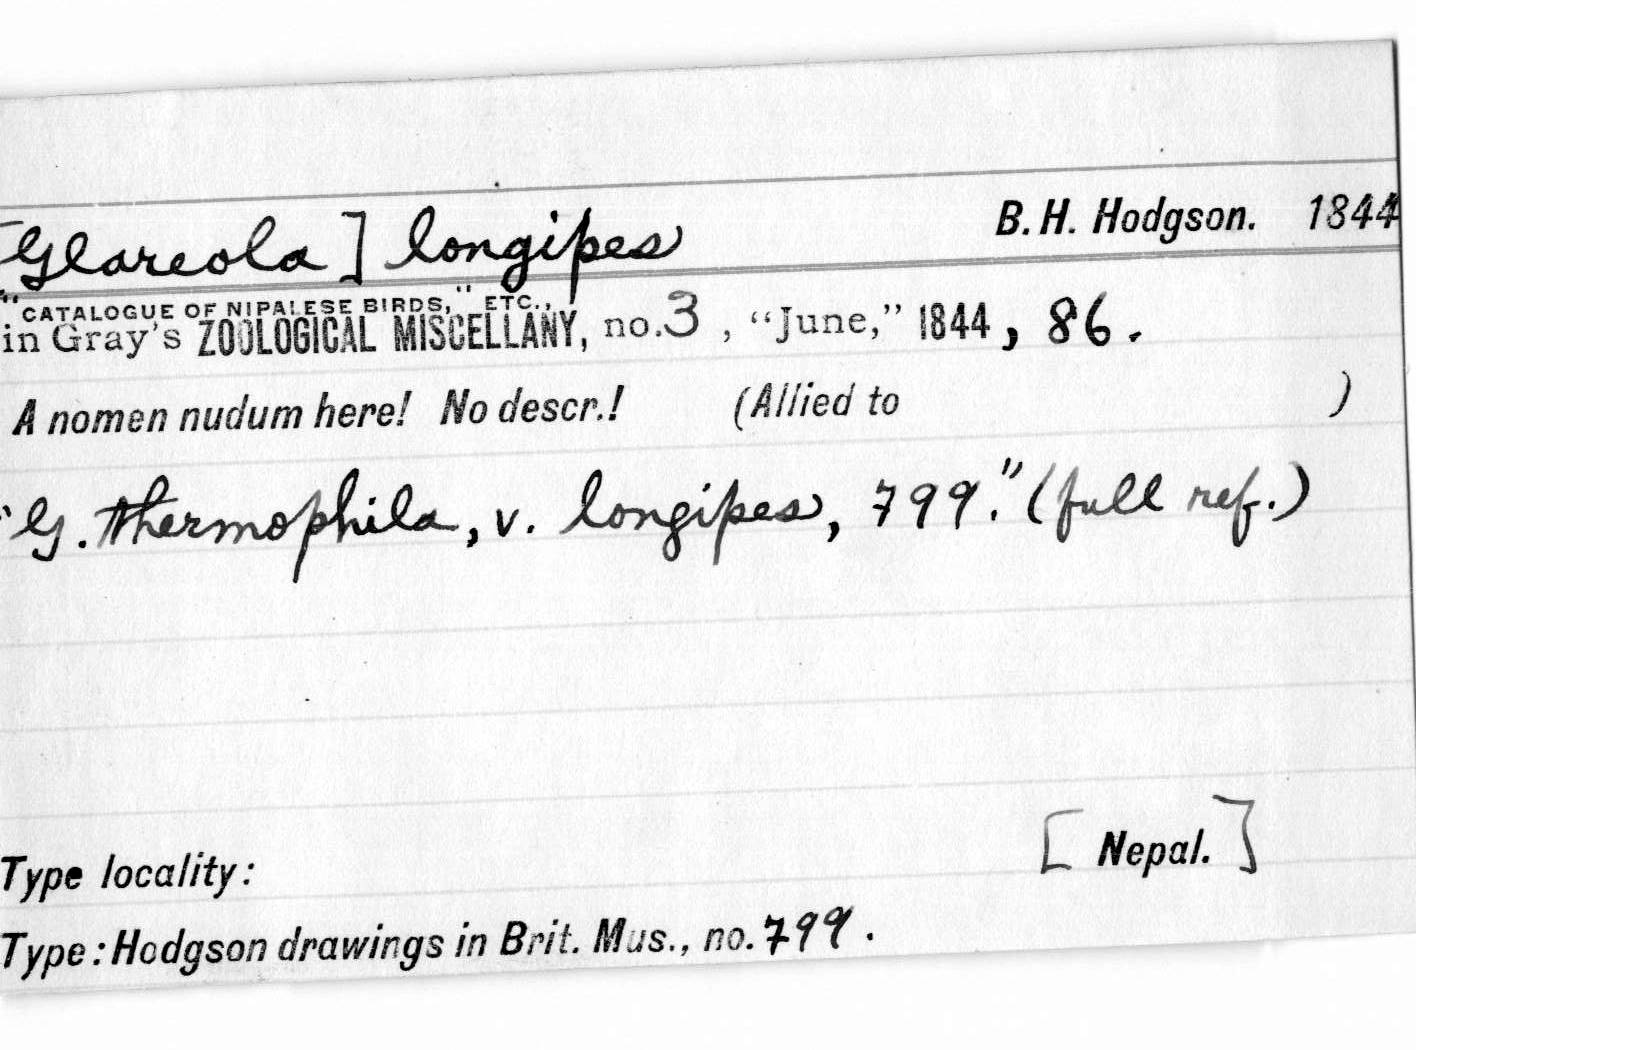 [Glareola] longipes B. H. Hodgson. 1844
"CATALOGUE OF NIPALESE BIRDS," ETC.,
in Gray's ZOOLOGICAL MISCELLANY, no. 3, "June," 1844, 86.
A nomen nudum here! No descr.! (Allied to )
"G. thermophila, v. longipes, 799." (full ref.)
[Nepal.]
Type locality:
Type: Hodgson drawings in Brit. Mus., no. 799.